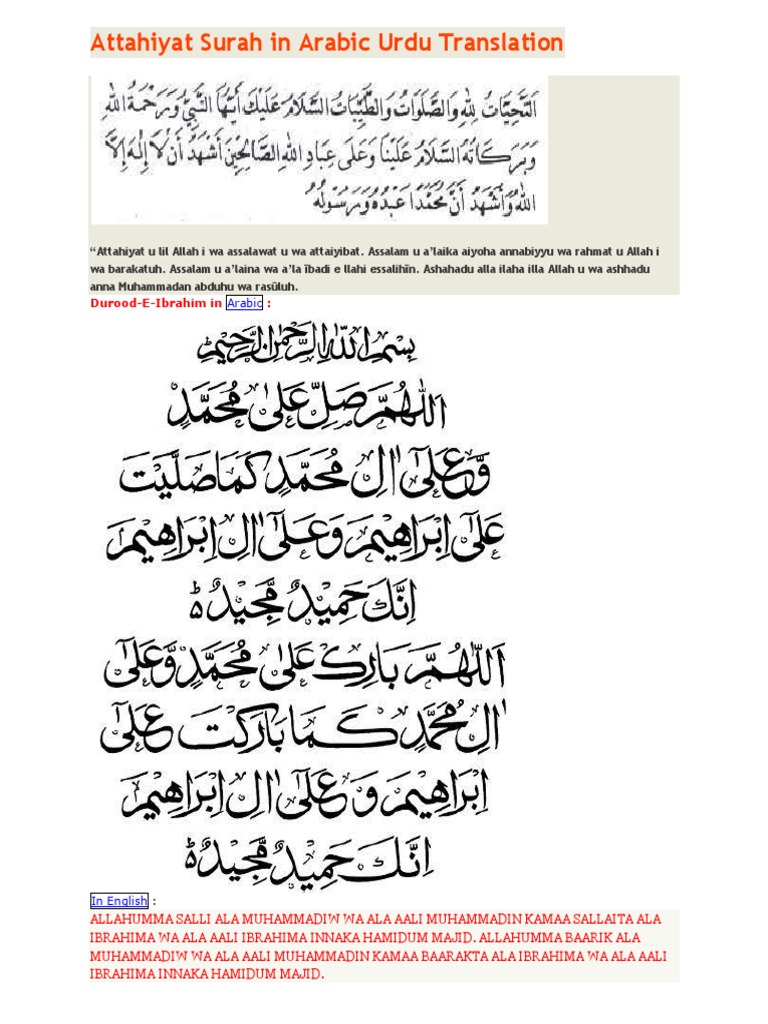 Attahiyat Surah in Arabic Urdu Translation
اَلتَّحِيَّاتُ لِلّٰهِ وَالصَّلَوَاتُ وَالطَّيِّبَاتُ السَّلَامُ عَلَيْكَ أَيُّهَا النَّبِيُّ وَرَحْمَةُ اللهِ
وَبَرَكَاتُهُ السَّلَامُ عَلَيْنَا وَعَلَى عِبَادِ اللهِ الصَّالِحِيْنَ أَشْهَدُ أَنْ لَا إِلٰهَ إِلَّا
اللهُ وَأَشْهَدُ أَنَّ مُحَمَّدًا عَبْدُهُ وَرَسُوْلُهُ
“Attahiyat u lil Allah i wa assalawat u wa attaiyibat. Assalam u a’laika aiyoha annabiyyu wa rahmat u Allah i
wa barakatuh. Assalam u a’laina wa a’la ībadi e llahi essalihīn. Ashahadu alla ilaha illa Allah u wa ashhadu
anna Muhammadan abduhu wa rasūluh.
Durood-E-Ibrahim in Arabic :
بِسْمِ اللّٰهِ الرَّحْمٰنِ الرَّحِيْمِ
اَللّٰهُمَّ صَلِّ عَلٰى مُحَمَّدٍ
وَّعَلٰٓى اٰلِ مُحَمَّدٍ كَمَا صَلَّيْتَ
عَلٰٓى اِبْرَاهِيْمَ وَعَلٰٓى اٰلِ اِبْرَاهِيْمَ
اِنَّكَ حَمِيْدٌ مَّجِيْدٌ ؕ
اَللّٰهُمَّ بَارِكْ عَلٰى مُحَمَّدٍ وَّعَلٰٓى
اٰلِ مُحَمَّدٍ كَمَا بَارَكْتَ عَلٰٓى
اِبْرَاهِيْمَ وَعَلٰٓى اٰلِ اِبْرَاهِيْمَ
اِنَّكَ حَمِيْدٌ مَّجِيْدٌ ؕ
In English :
ALLAHUMMA SALLI ALA MUHAMMADIW WA ALA AALI MUHAMMADIN KAMAA SALLAITA ALA
IBRAHIMA WA ALA AALI IBRAHIMA INNAKA HAMIDUM MAJID. ALLAHUMMA BAARIK ALA
MUHAMMADIW WA ALA AALI MUHAMMADIN KAMAA BAARAKTA ALA IBRAHIMA WA ALA AALI
IBRAHIMA INNAKA HAMIDUM MAJID.